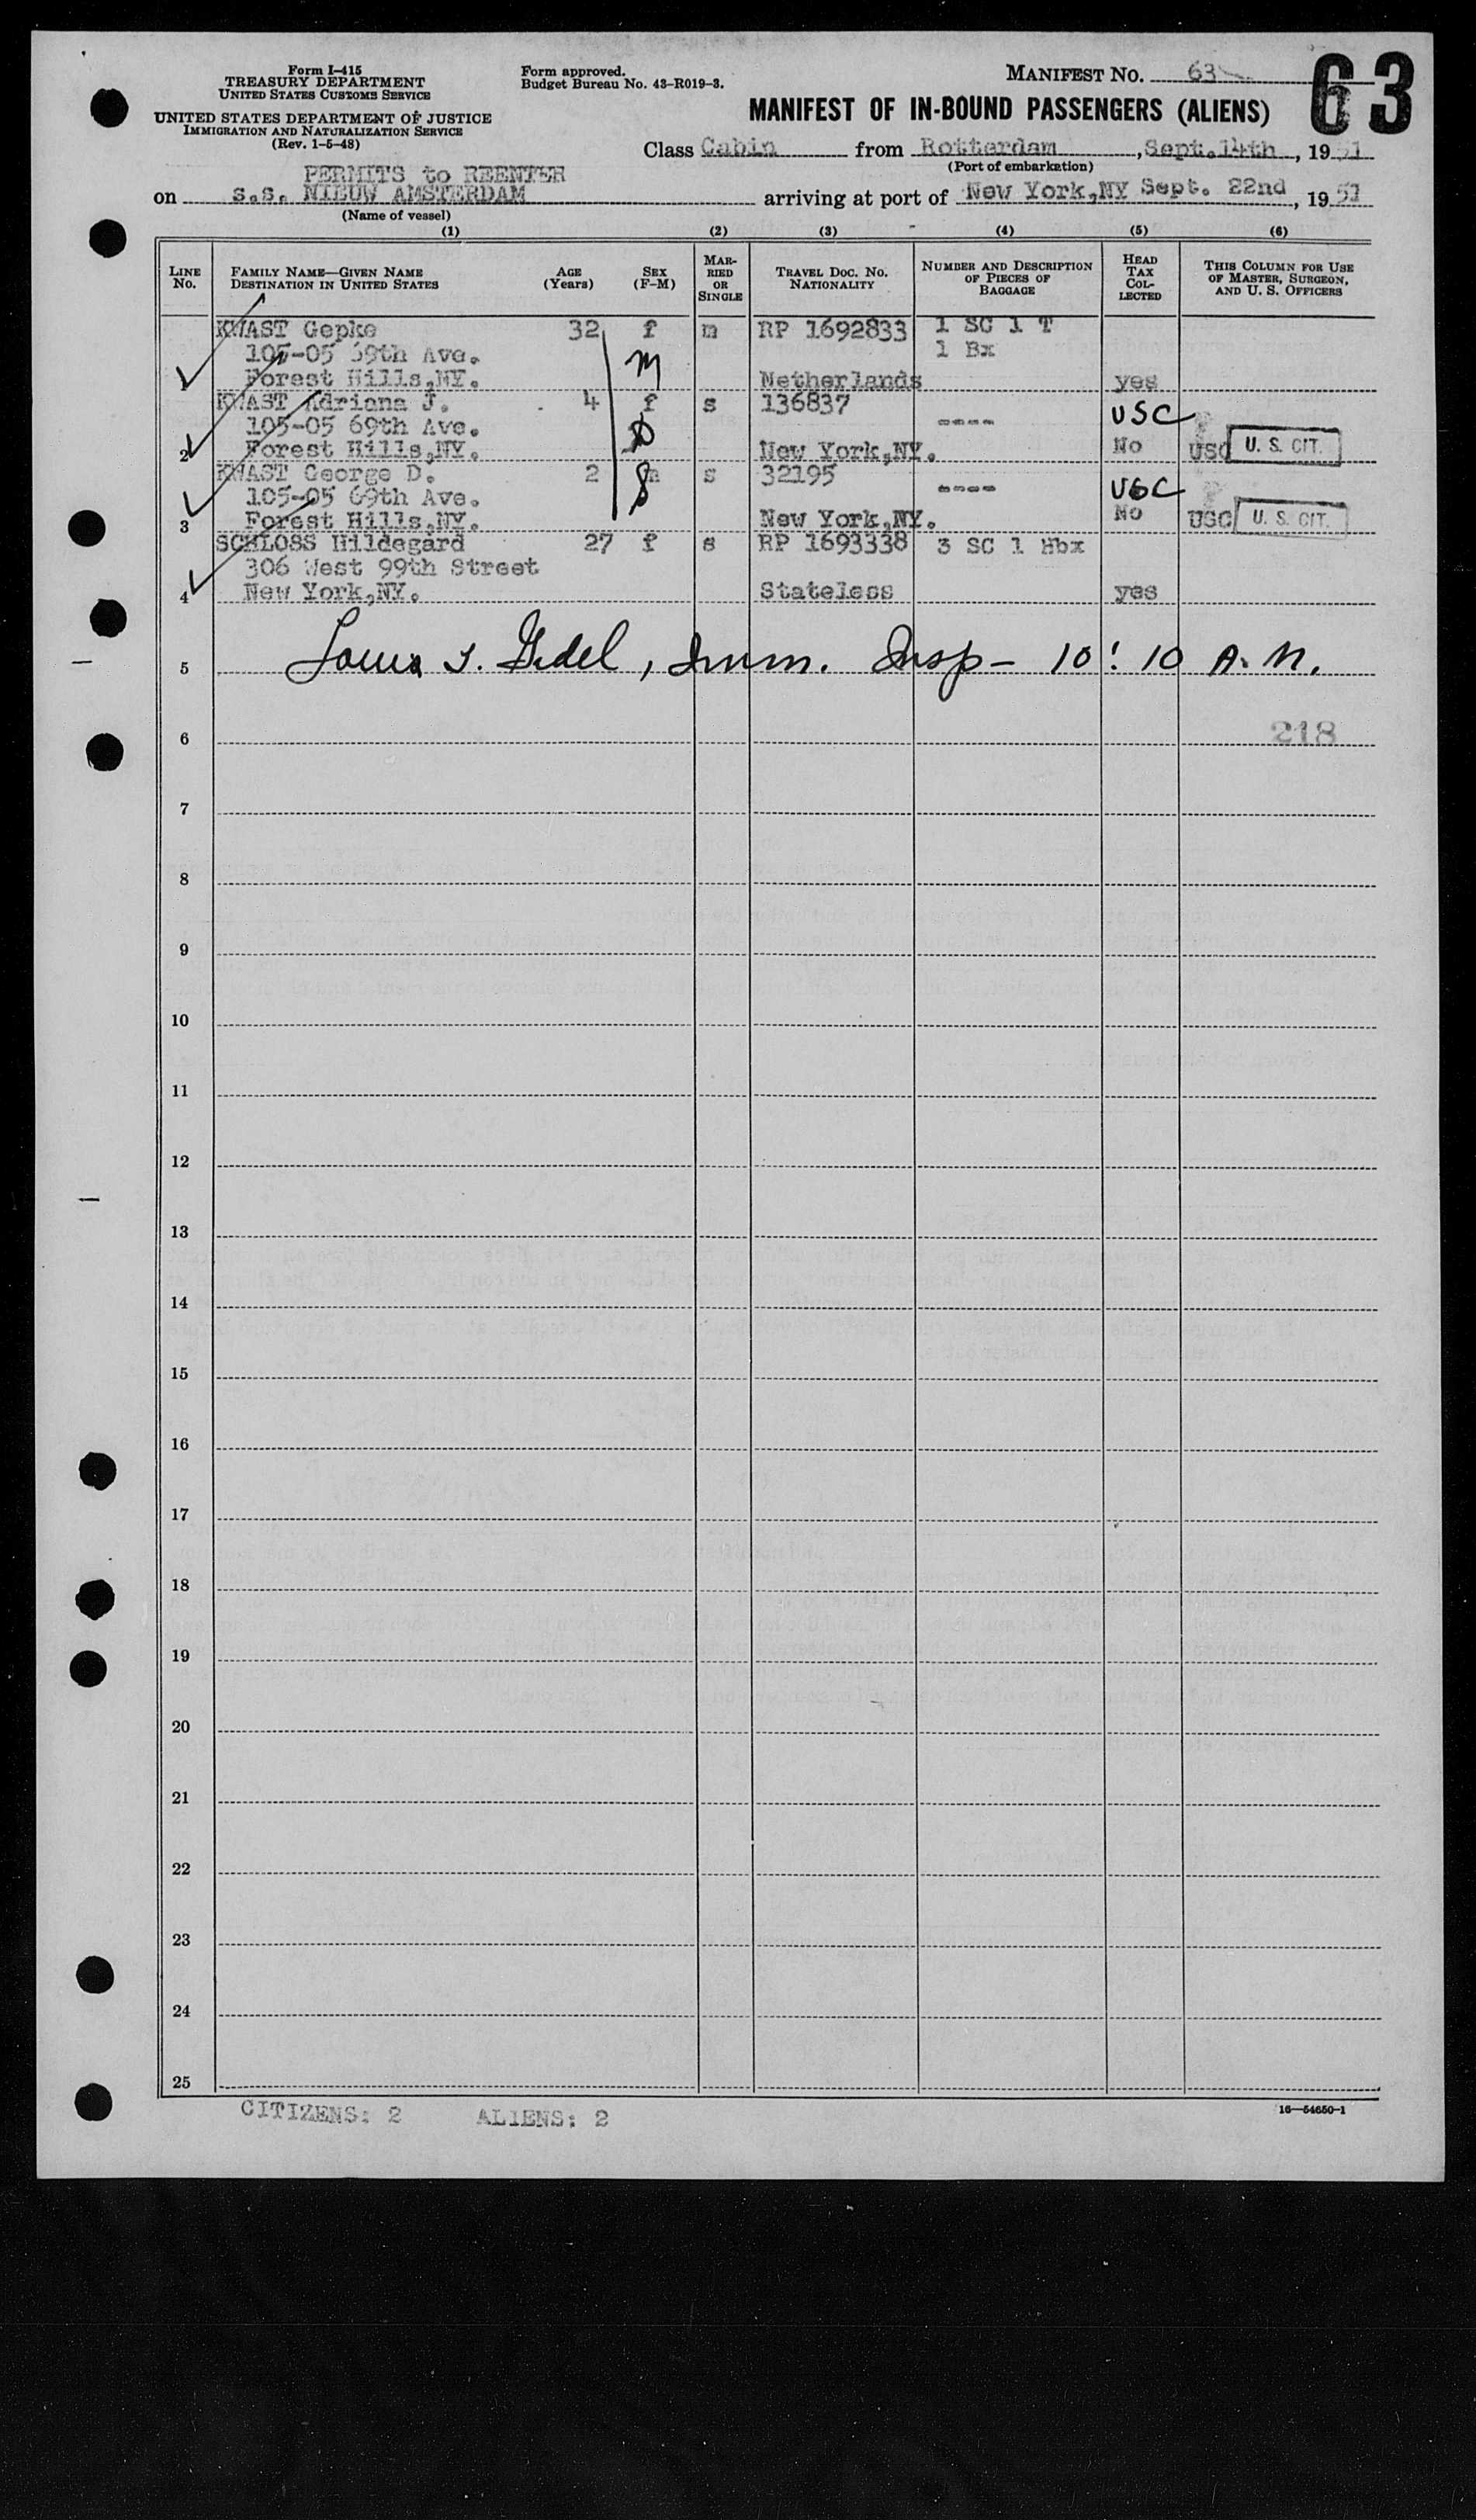 Form I-415
TREASURY DEPARTMENT
UNITED STATES CUSTOMS SERVICE
UNITED STATES DEPARTMENT OF JUSTICE
IMMIGRATION AND NATURALIZATION SERVICE
(Rev. 1-5-48)
Form approved.
Budget Bureau No. 43-R019-3.
MANIFEST NO. 63
63
MANIFEST OF IN-BOUND PASSENGERS (ALIENS)
Class Cabin from Rotterdam, Sept.14th, 1951
(Port of embarkation)
PERMITS to REENTER
on s.s. NIEUW AMSTERDAM arriving at port of New York,NY Sept. 22nd, 1951
(Name of vessel)
(1) (2) (3) (4) (5) (6)
LINE NO. FAMILY NAME—GIVEN NAME DESTINATION IN UNITED STATES AGE (Years) SEX (F-M) MARRIED OR SINGLE TRAVEL DOC. NO. NATIONALITY NUMBER AND DESCRIPTION OF PIECES OF BAGGAGE HEAD TAX COLLECTED THIS COLUMN FOR USE OF MASTER, SURGEON, AND U. S. OFFICERS
KWAST Gepke 32 f m RP 1692833 1 SC 1 T
105-05 69th Ave. M 1 Bx
1 Forest Hills,NY. Netherlands yes
KWAST Adriana J. 4 f s 136837 ---- USC
105-05 69th Ave. D
2 Forest Hills,NY. New York,NY. No USC U. S. CIT.
KWAST George D. 2 m s 32195 ---- USC
105-05 69th Ave. S
3 Forest Hills,NY. New York,NY. No USC U. S. CIT.
SCHLOSS Hildegard 27 f s RP 1693338 3 SC 1 Hbx
306 West 99th Street
4 New York,NY. Stateless yes
5 Louis I. Gidel, Imm. Insp - 10:10 A.M.
6 218
7
8
9
10
11
12
13
14
15
16
17
18
19
20
21
22
23
24
25
CITIZENS: 2 ALIENS: 2
16—54650-1